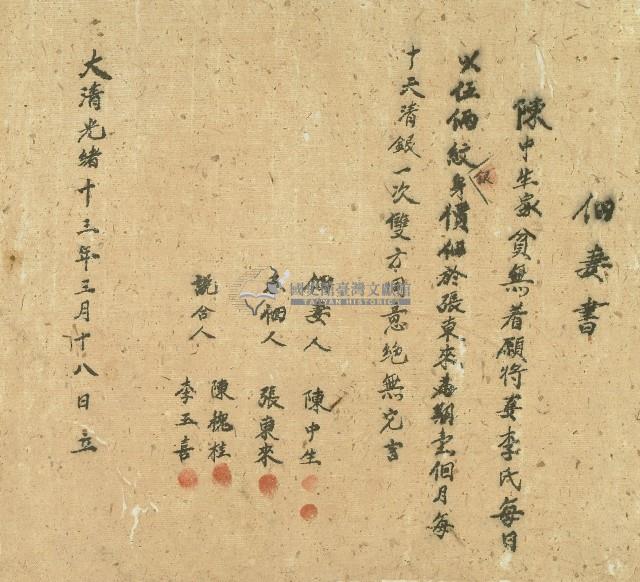 佃妻書
陳中生家貧無着願將妻李氏每日
以伍俩紋銀身價佃於張東來為期壹個月每
十天清銀一次雙方同意絶無乞言
佃妻人 陳中生
佃人 張東來
說合人 陳槐桂
李玉喜
大清光緒十三年三月十八日立
國史館臺灣文獻館
TAIWAN HISTORICA